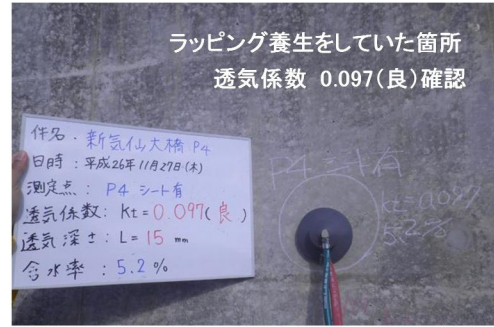 ラッピング養生をしていた箇所
透気係数 0.097(良)確認
件名・新気仙大橋 P4
日時:平成26年11月27日(木)
測定点: P4 シート有
透気係数: Kt=0.097(良)
透気深さ: L=15 mm
含水率 : 5.2%
P4 シート有
kt=0.097
5.2%